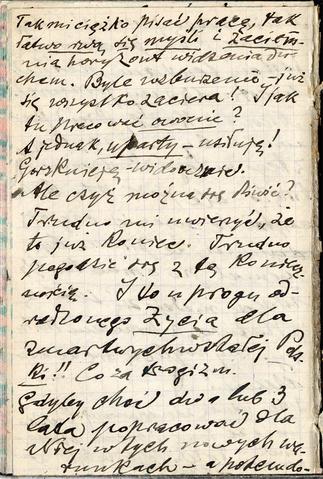 Tak mi ciężko pisać pracę, tak
łatwo rwą się myśli i zaciem-
nia horyzont widzenia du-
chem. Byle wzburzenie – już
się wszystko zaciera! I jak
tu pracować owocnie?
A jednak, uparty – usiłuję!
Gorzknieję – widocznie.
Ale czyż można się dziwić?
Trudno mi uwierzyć, że
to już koniec. Trudno
pogodzić się z tą koniecz-
nością. I to u progu od-
rodzonego Życia dla
zmartwychwstałej Pols-
ki!! Co za tragizm.
Gdyby choć dwa lub 3
lata popracować dla
Niej w tych nowych wa-
runkach – a potem do-